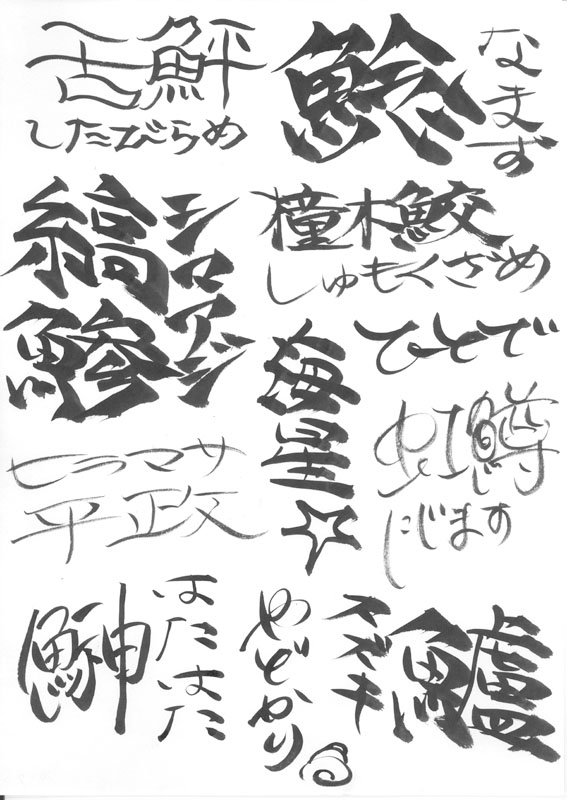 舌鮃
したびらめ
鯰
なまず
縞鰺
シマアジ
橦木鮫
しゅもくざめ
ひとで
海星☆
虹鱒
にじます
ヒラマサ
平政
鰰
はたはた
やどかり
スズキ
鱸